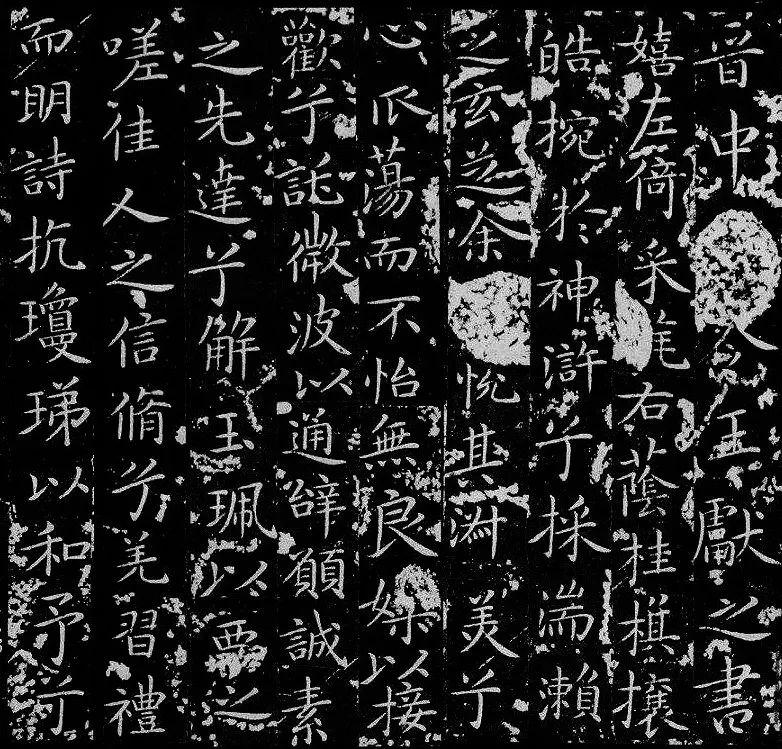 晉中令王獻之書
嬉左倚采旄右蔭桂棋攘
皓捥於神滸兮採湍瀨
之玄芝余悅其淑美兮
心蕩而不怡無良媒以接
歡兮託微波以通辭願誠素
之先達兮解玉珮以要之
嗟佳人之信脩兮羌習禮
而明詩抗瓊珶以和予兮